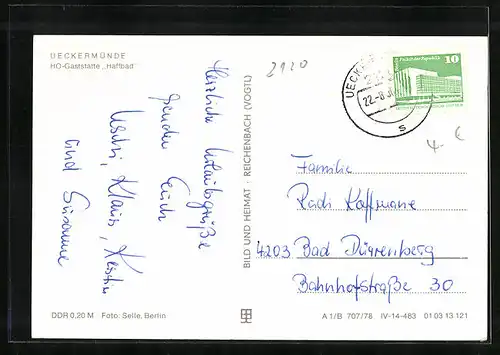 UECKERMÜNDE
HO-Gaststätte „Haffbad"
Herzliche Urlaubsgrüße
senden Euch
Uschi, Klaus, Kerstin
und Susanne
BILD UND HEIMAT · REICHENBACH (VOGTL)
2120
UECKER
22.-8.
s
Palast der Republik
10
4- €
Familie
Radi Kaffmane
4203 Bad Dürrenberg
Bahnhofstraße 30
DDR 0,20 M Foto: Selle, Berlin
A 1/B 707/78 IV-14-483 01 03 13 121